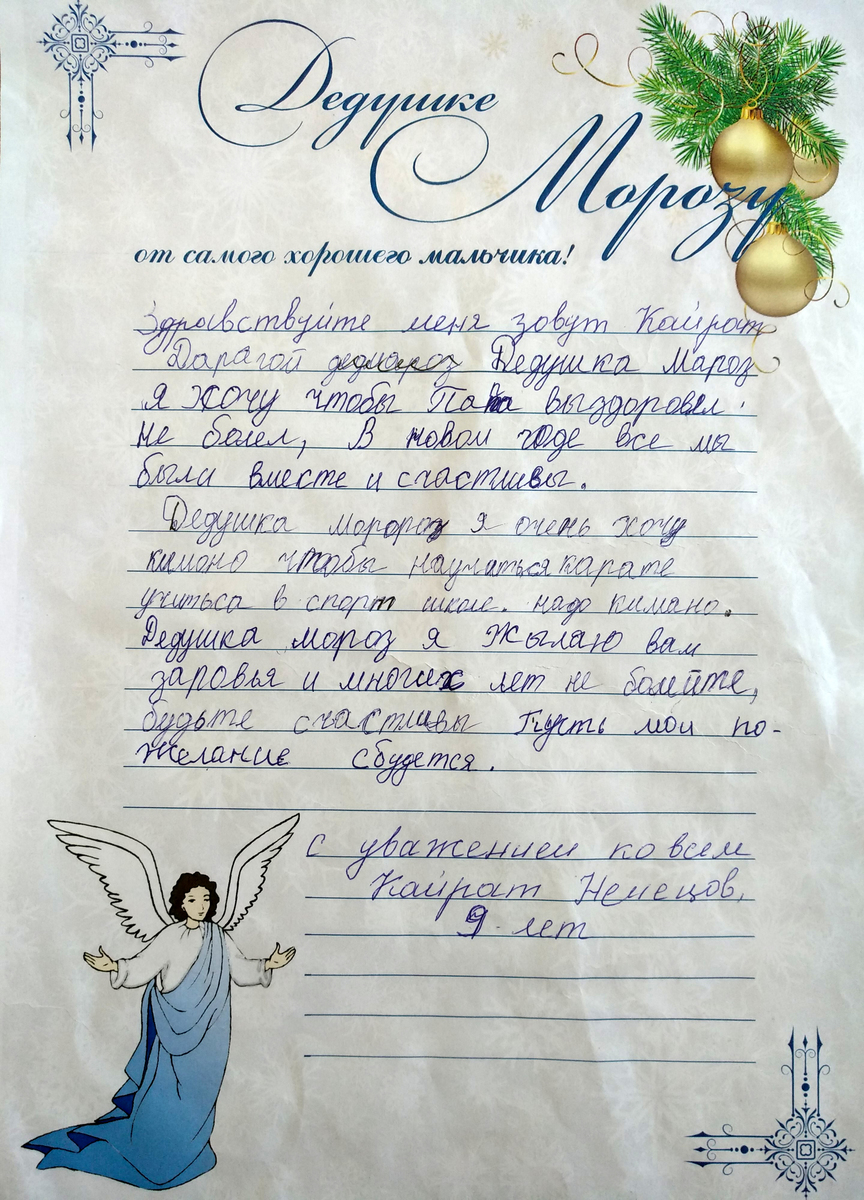 Дедушке
Морозу
от самого хорошего мальчика!
Здравствуйте меня зовут Кайрат
Дарагой дедмороз Дедушка Мароз
я хочу чтобы Папа выздоровел.
не болел, В новом годе все мы
были вместе и счастливы.
Дедушка моророз я очень хочу
кимоно чтобы научиться карате
учитьса в спорт школе. надо кимано.
Дедушка мороз я жылаю вам
заровья и многих лет не болейте,
будьте счастливы Пусть мои по-
желание сбудется.
с уважением ко всем
Кайрат Немецов,
9 лет